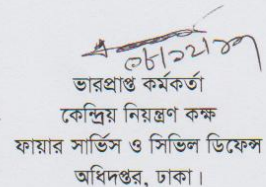 ০৮/১২/১৯
ভারপ্রাপ্ত কর্মকর্তা
কেন্দ্রিয় নিয়ন্ত্রণ কক্ষ
ফায়ার সার্ভিস ও সিভিল ডিফেন্স
অধিদপ্তর, ঢাকা।